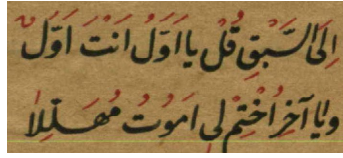 اِلَى السَّبْقِ قُلْ يا اَوَّلُ اَنْتَ اَوَّلٌ
ويا آخِرُ اخْتِمْ لي اَمُوتُ مُهَلِّلا